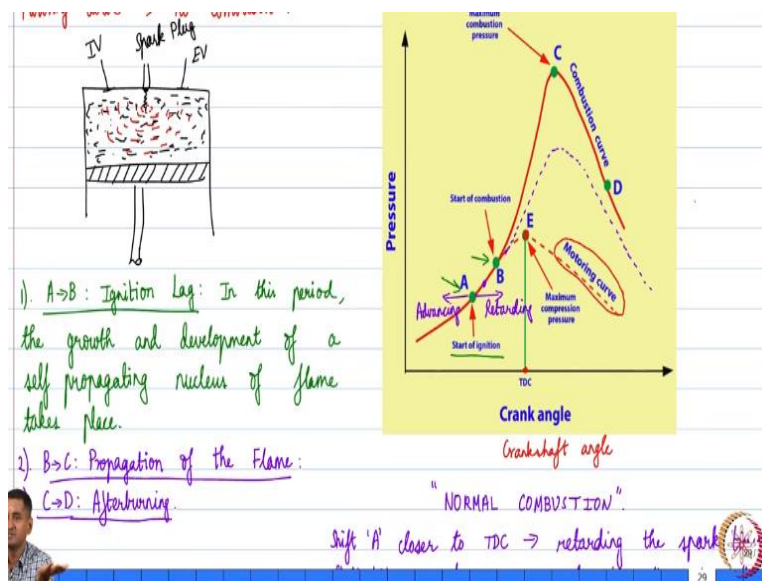 IV
Spark Plug
EV
1). A→B : Ignition Lag : In this period,
the growth and development of a
self propagating nucleus of flame
takes place.
2). B→C : Propagation of the Flame :
C→D : Afterburning.
combustion
pressure
C
Combustion curve
D
Start of combustion
E
A
B
Motoring curve
Advancing
Retarding
Maximum
compression
pressure
Start of ignition
Pressure
TDC
Crank angle
Crankshaft angle
"NORMAL COMBUSTION".
Shift 'A' closer to TDC → retarding the spark
29